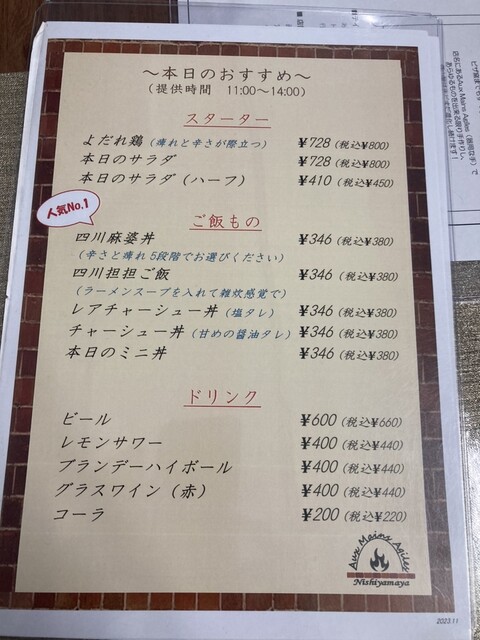 ～本日のおすすめ～
(提供時間 11:00～14:00)
スターター
よだれ鶏 (痺れと辛さが際立つ) ¥728 (税込¥800)
本日のサラダ ¥728 (税込¥800)
本日のサラダ (ハーフ) ¥410 (税込¥450)
人気No.1
ご飯もの
四川麻婆丼 ¥346 (税込¥380)
(辛さと痺れ 5段階でお選びください)
四川担担ご飯 ¥346 (税込¥380)
(ラーメンスープを入れて雑炊感覚で)
レアチャーシュー丼 (塩タレ) ¥346 (税込¥380)
チャーシュー丼 (甘めの醤油タレ) ¥346 (税込¥380)
本日のミニ丼 ¥346 (税込¥380)
ドリンク
ビール ¥600 (税込¥660)
レモンサワー ¥400 (税込¥440)
ブランデーハイボール ¥400 (税込¥440)
グラスワイン (赤) ¥400 (税込¥440)
コーラ ¥200 (税込¥220)
Aux Mains Agiles
Nishiyamaya
2023.11
店名にあるAux Mains Agiles (器用な手) で